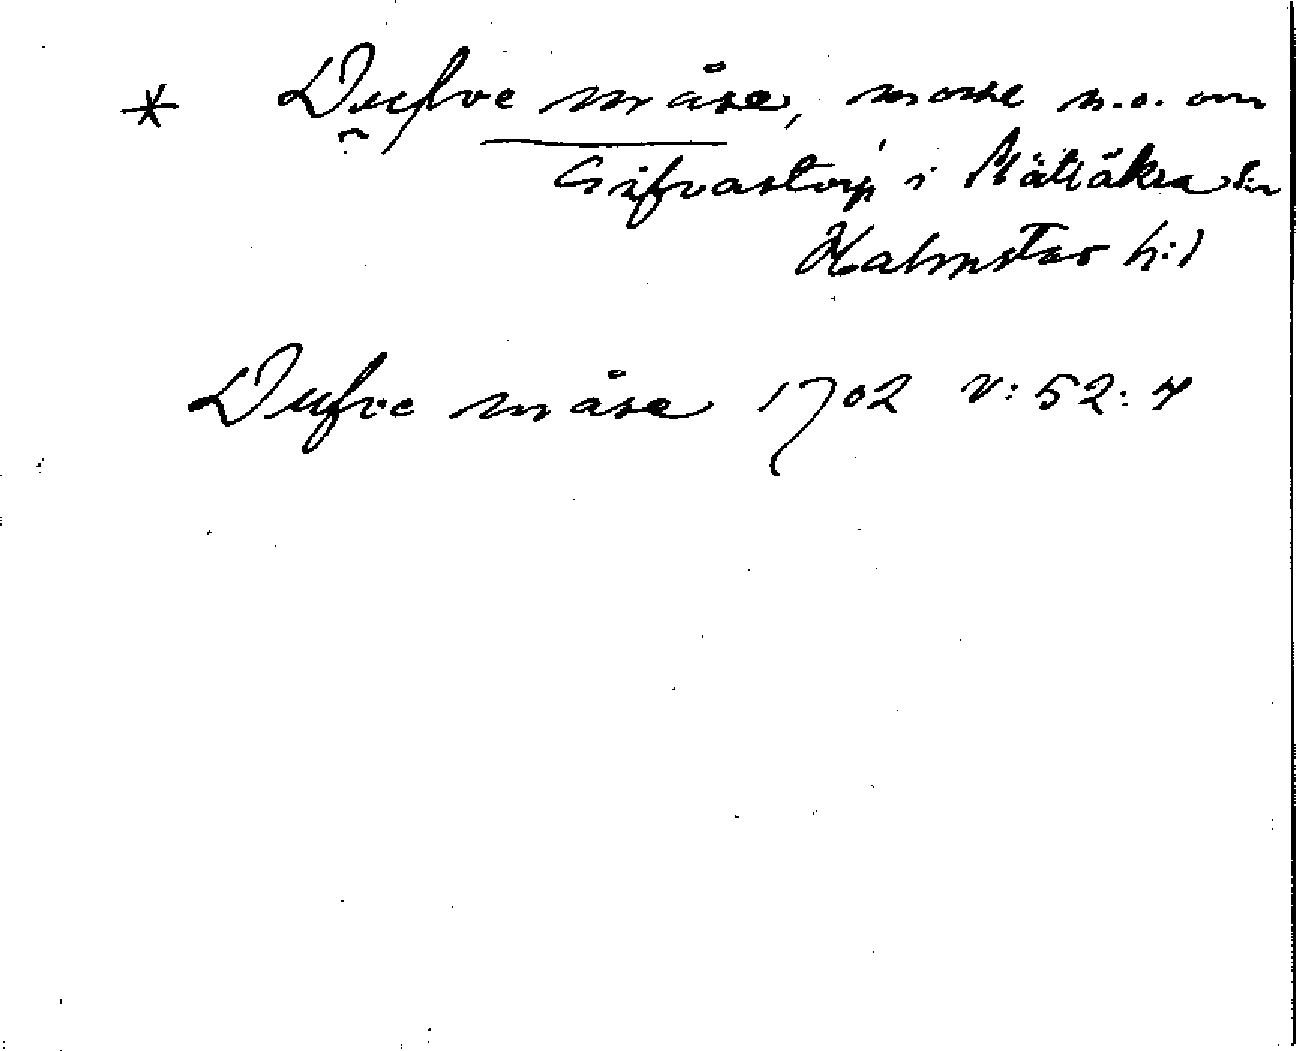 * Dufve måse, mosse n.o. om
Gifvastorp i Mällåkra sn
Halmstad h:d
Dufve måse 1702 V:52:4